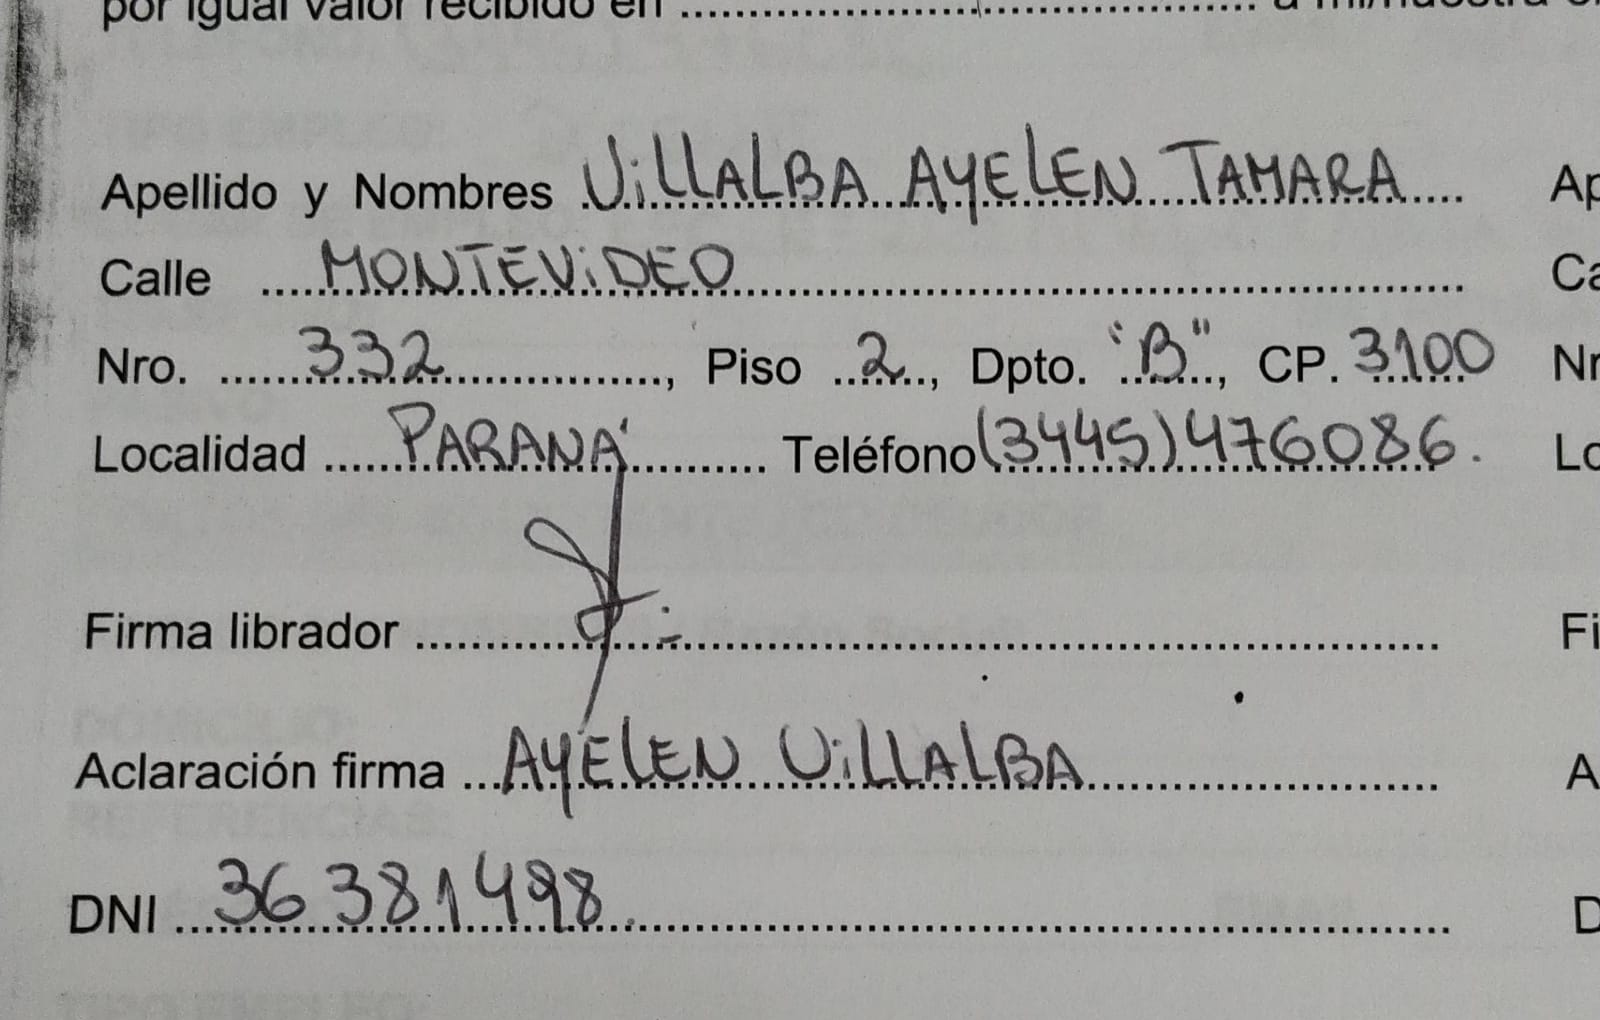 por igual valor recibido en ........................................ a mi/nuestra
Apellido y Nombres VILLALBA AYELEN TAMARA Ap
Calle MONTEVIDEO Ca
Nro. 332, Piso 2, Dpto. "B", CP. 3100 Nr
Localidad PARANÁ Teléfono (3445) 476086. Lo
Firma librador ........................................ Fi
Aclaración firma AYELEN VILLALBA A
DNI 36381498. D